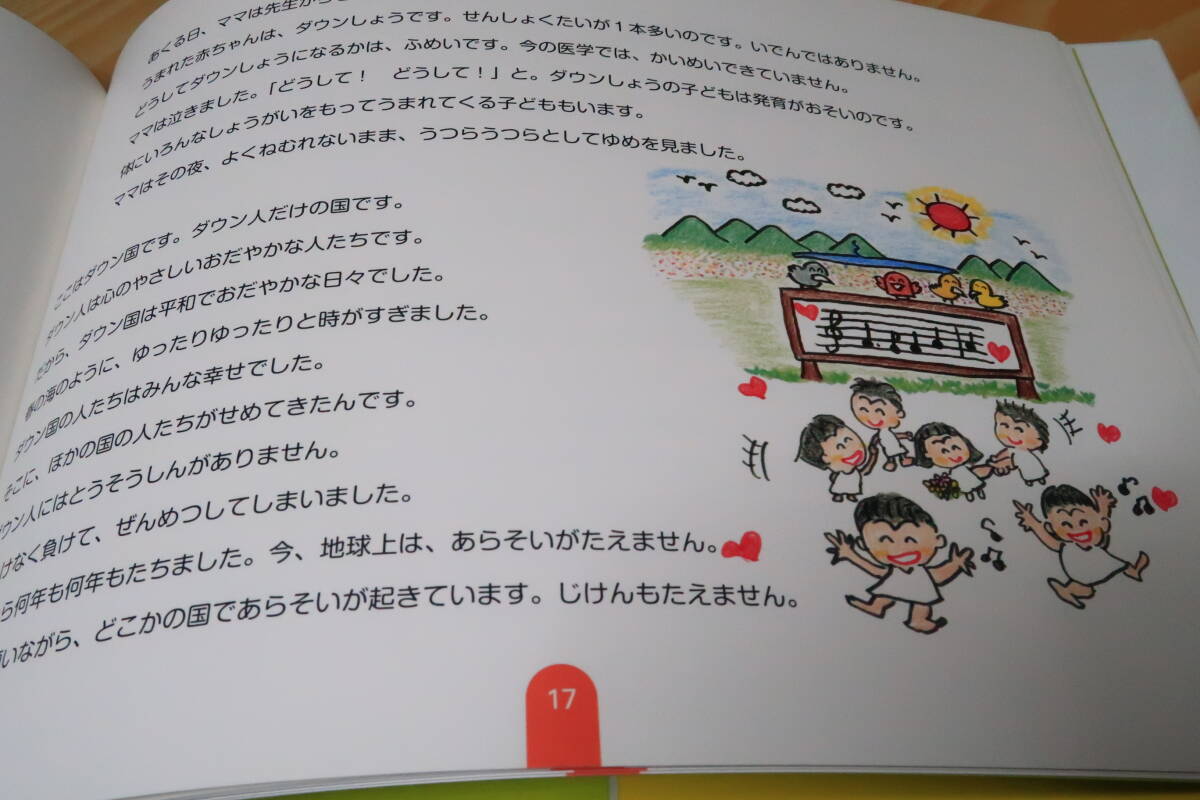 あくる日、ママは先生から
うまれた赤ちゃんは、ダウンしょうです。せんしょくたいが1本多いのです。いでんではありません。
どうしてダウンしょうになるかは、ふめいです。今の医学では、かいめいできていません。
ママは泣きました。「どうして！　どうして！」と。ダウンしょうの子どもは発育がおそいのです。
体にいろんなしょうがいをもってうまれてくる子どももいます。
ママはその夜、よくねむれないまま、うつらうつらとしてゆめを見ました。
ここはダウン国です。ダウン人だけの国です。
ダウン人は心のやさしいおだやかな人たちです。
だから、ダウン国は平和でおだやかな日々でした。
春の海のように、ゆったりゆったりと時がすぎました。
ダウン国の人たちはみんな幸せでした。
そこに、ほかの国の人たちがせめてきたんです。
ダウン人にはとうそうしんがありません。
けなく負けて、ぜんめつしてしまいました。
ら何年も何年もたちました。今、地球上は、あらそいがたえません。
いながら、どこかの国であらそいが起きています。じけんもたえません。
17